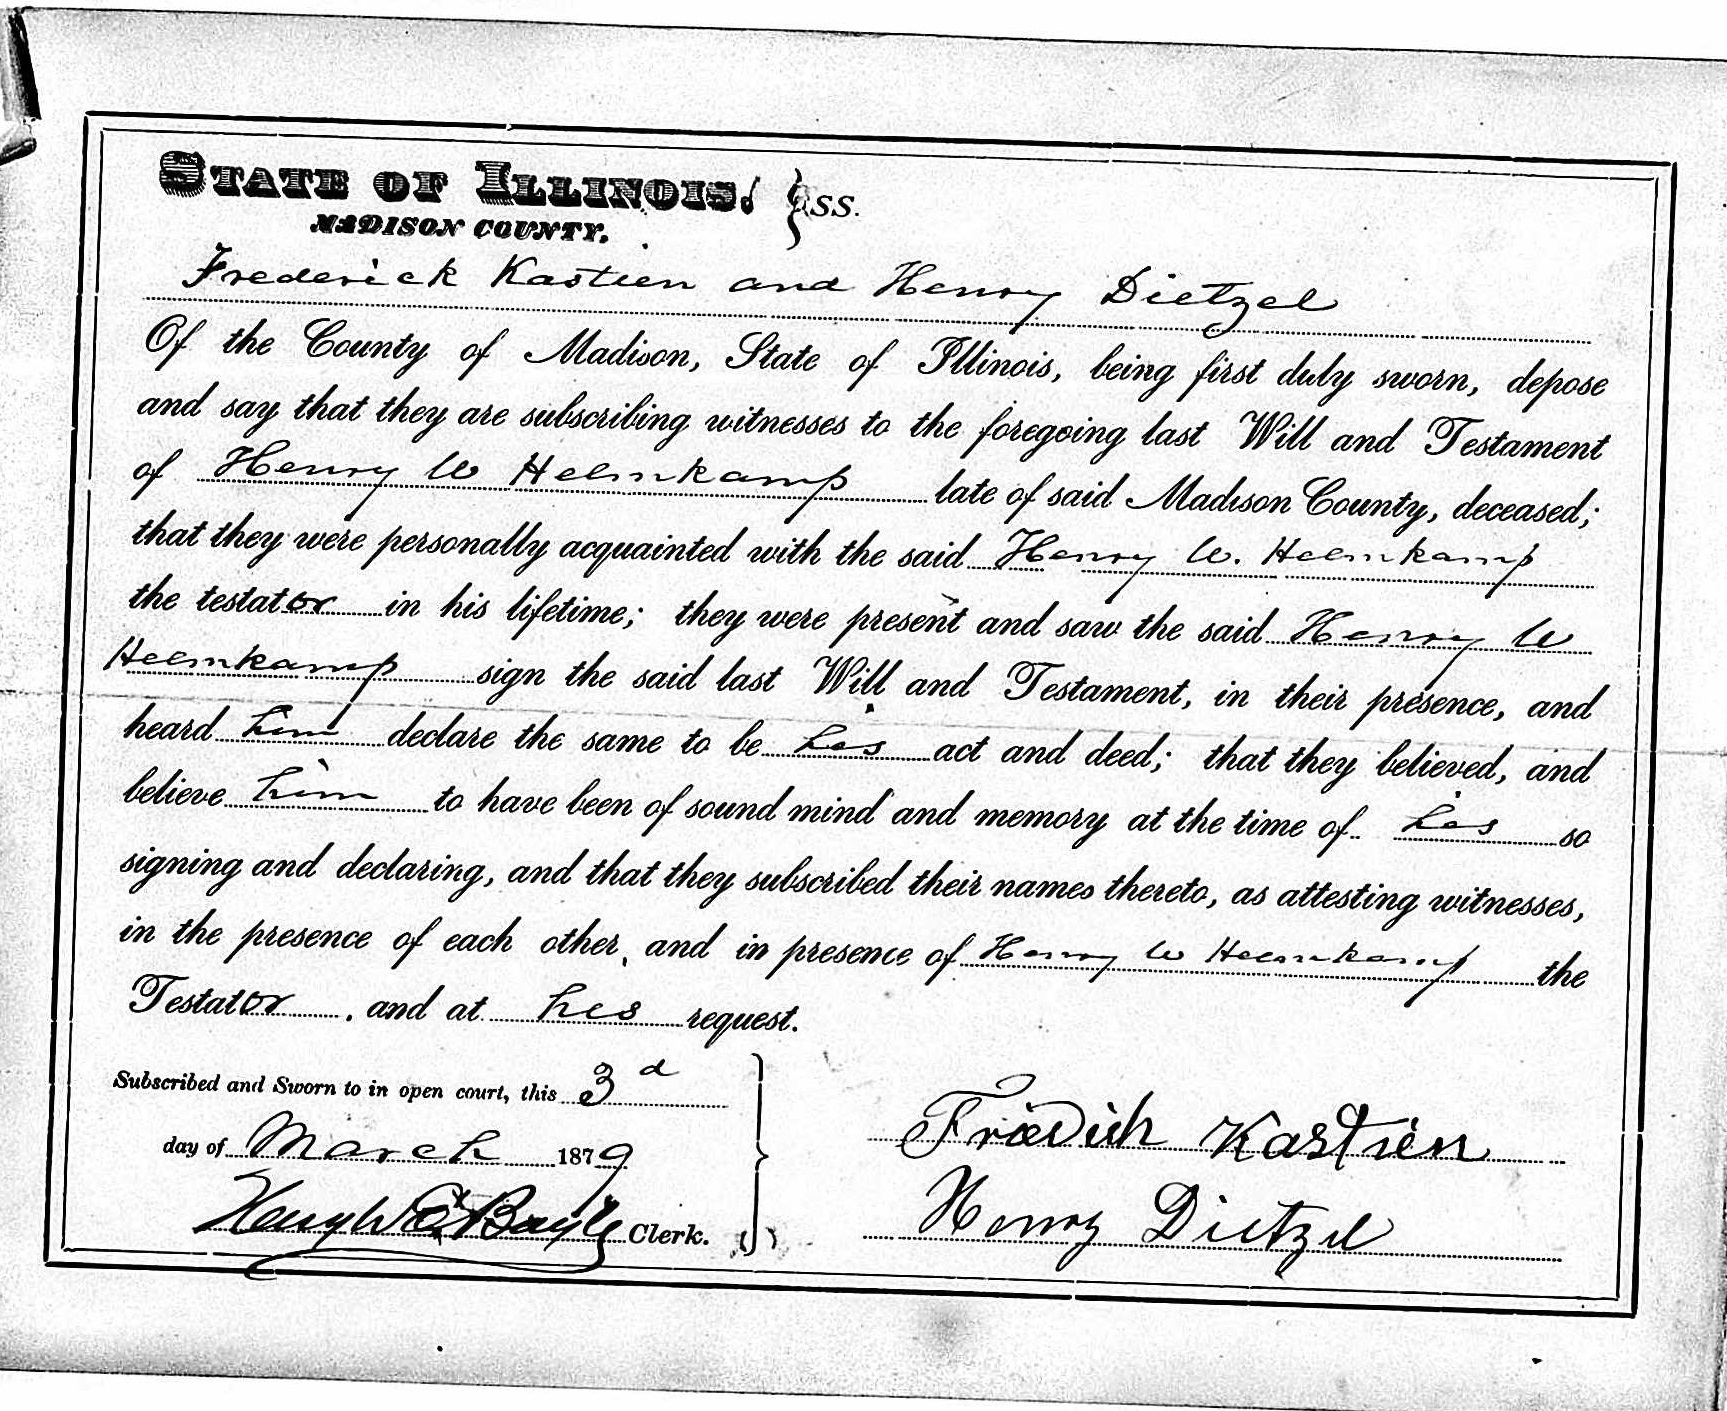 STATE OF ILLINOIS. } SS.
MADISON COUNTY.
Frederick Kastien and Henry Dietzel
Of the County of Madison, State of Illinois, being first duly sworn, depose
and say that they are subscribing witnesses to the foregoing last Will and Testament
of Henry W Helmkamp late of said Madison County, deceased;
that they were personally acquainted with the said Henry W. Helmkamp
the testator in his lifetime; they were present and saw the said Henry W
Helmkamp sign the said last Will and Testament, in their presence, and
heard him declare the same to be his act and deed; that they believed, and
believe him to have been of sound mind and memory at the time of his so
signing and declaring, and that they subscribed their names thereto, as attesting witnesses,
in the presence of each other, and in presence of Henry W Helmkamp the
Testator, and at his request.
Subscribed and Sworn to in open court, this 3d
day of March 1879
Clerk.
Friedrich Kastien
Henry Dietzel